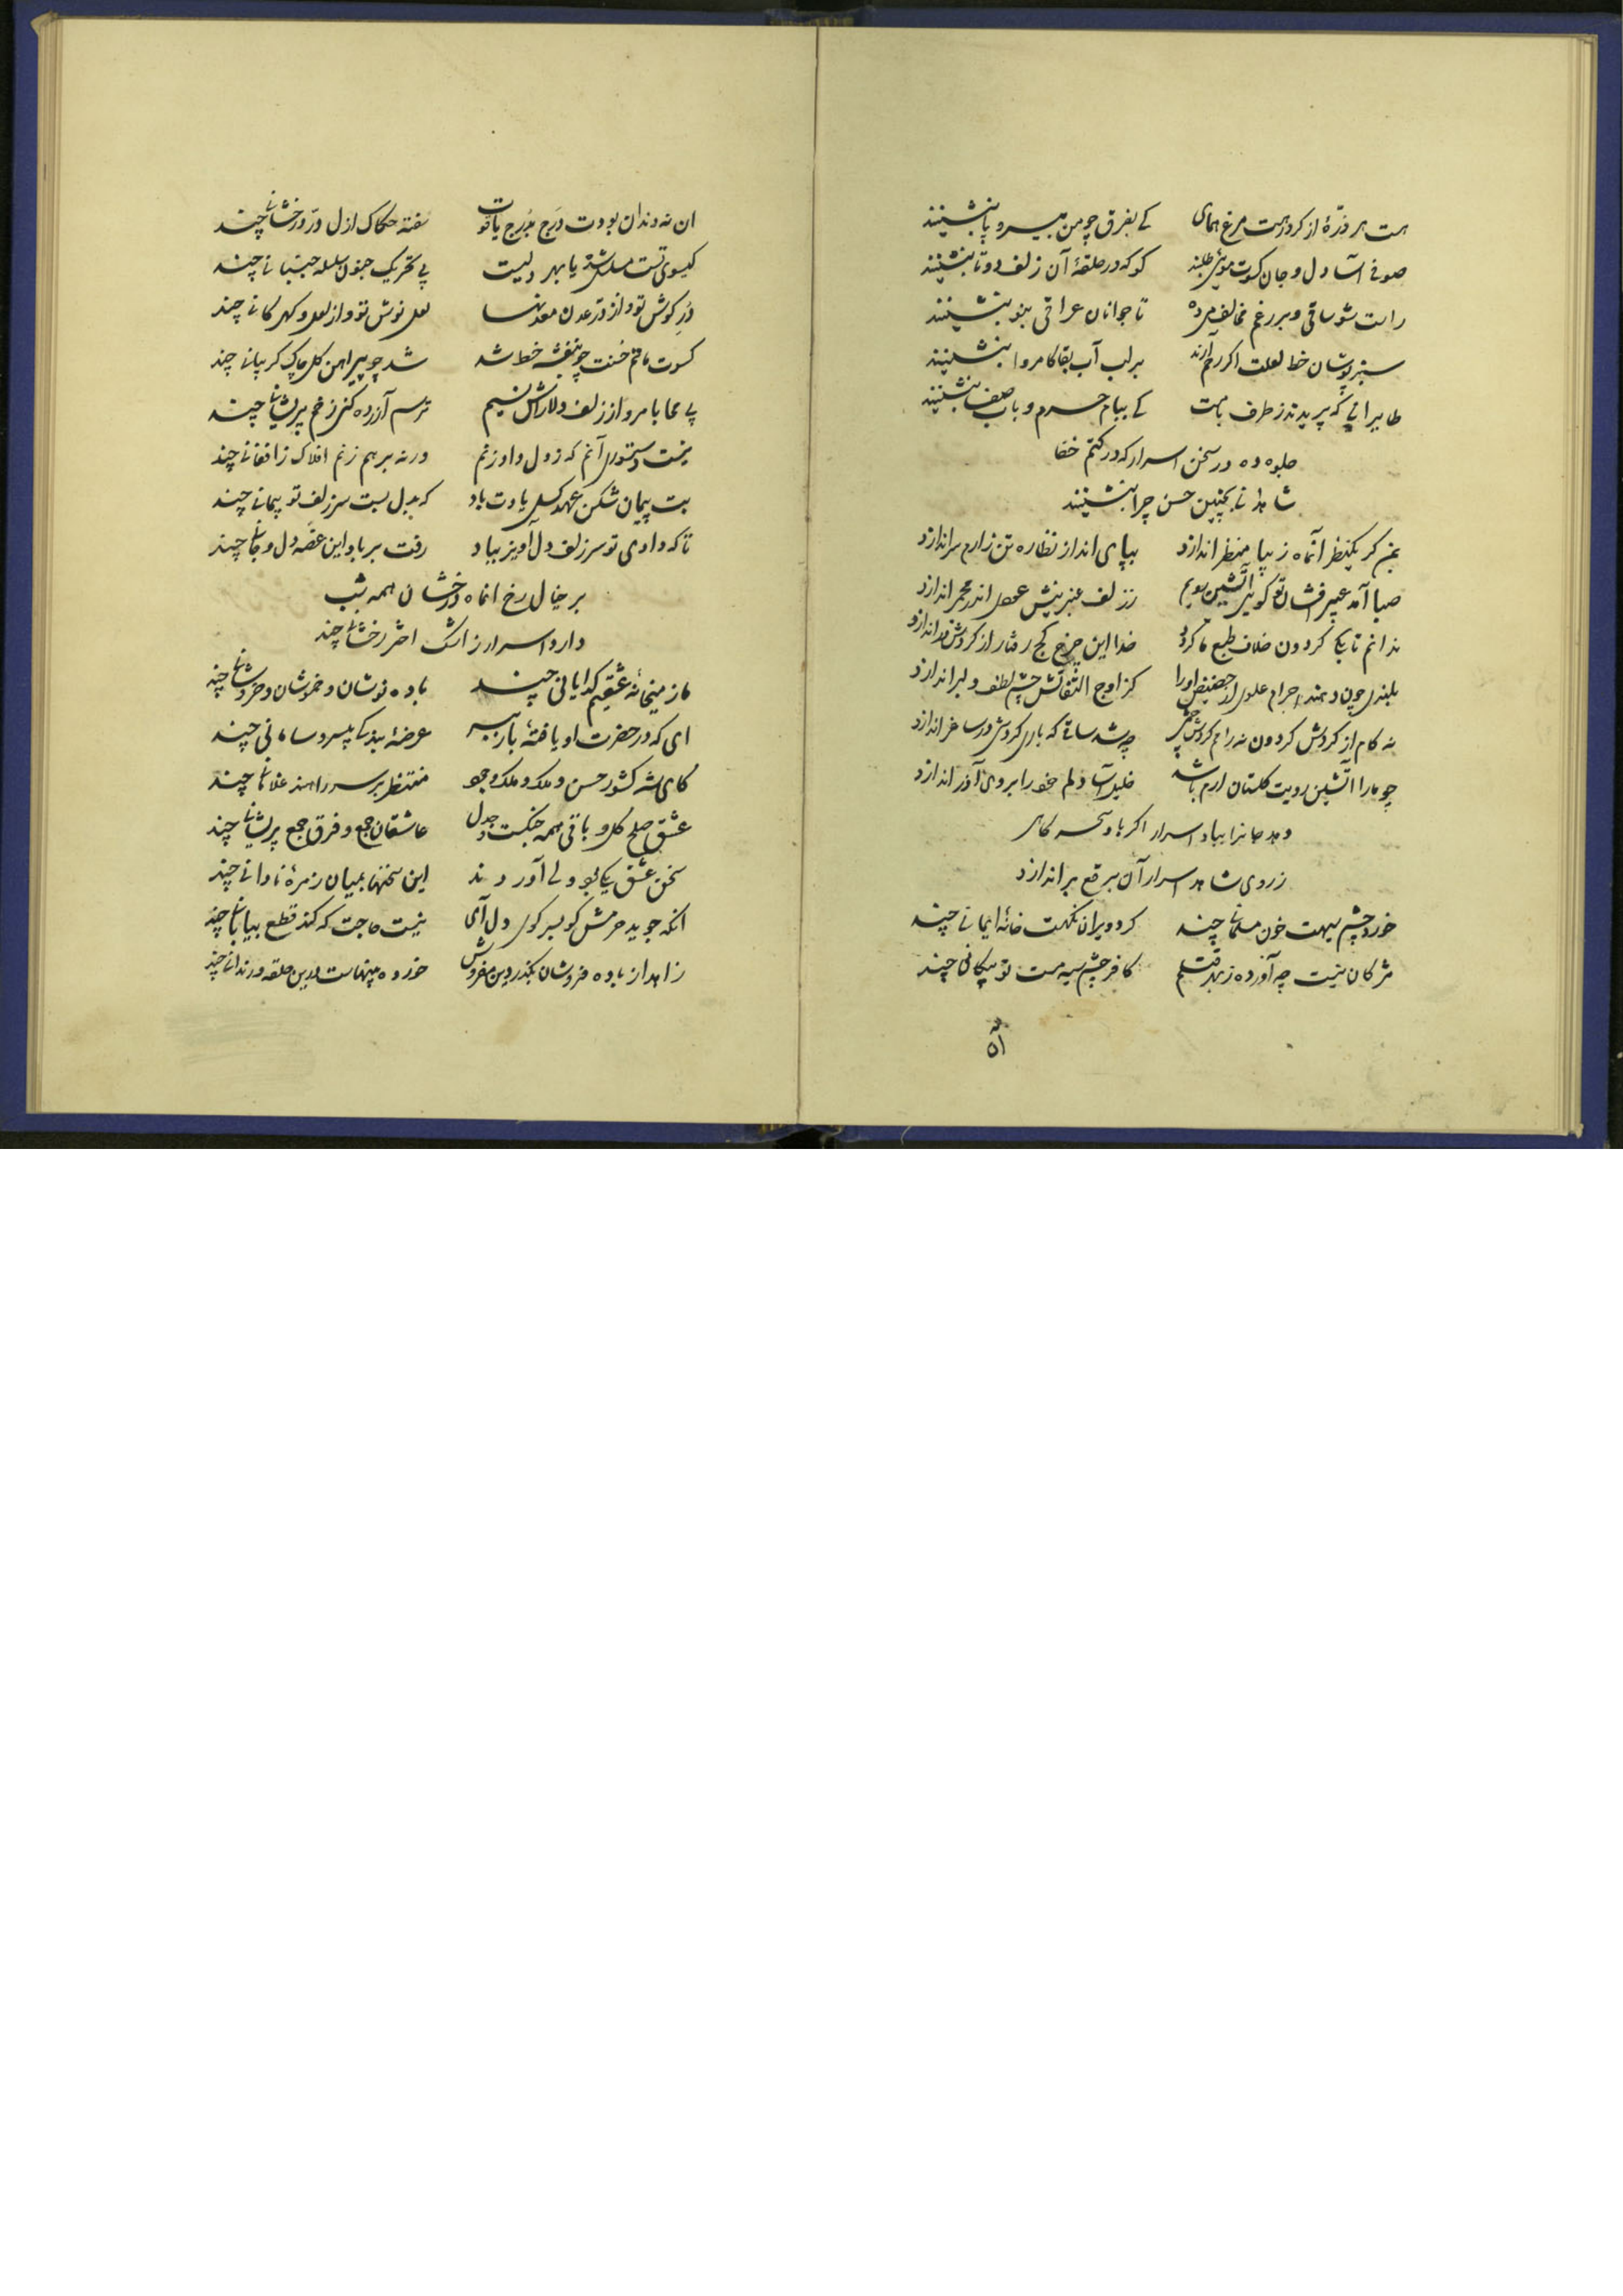 هست هر ذرّهٔ از کرد رهت مرغ همای کے بفرق چو من بیسر و پا بنشینند
صوفے آسا دل و جان کسوت موئی طلبند کو که در حلقهٔ آن زلف دوتا بنشینند
راست شو ساقی و بر رغم مخالف می ده تا جوانان عراقی بنوا بنشینند
سبز پوشان خط لعلت اکر رحم آرند بر لب آب بقا کامروا بنشینند
طایرانی که پریدند ز طرف بامت کے ببام حرم و باب صفا بنشینند
جلوه ده در سخن اسرار که در کتم خفا
شاهدانے بچنین حسن چرا بنشینند
بمن کر یکنظر آنماه زیبا منظر اندازد بپای انداز نظاره تن زارم سر اندازد
صبا آمد عبیر افشان تو کوئی آتشین رویم ز زلف عنبرینش عودی اندر مجمر اندازد
ندانم تا بکے کردون خلاف طبع ما کردد خدا این چرخ کج رفتار از کردش در اندازد
بلندی چون دهند اجرام علوی از حضیض او را کز اوج التفاتش چشم لطف دلبر اندازد
نه کام از کردش کردون نه رام کردش چشمی چه شد ساقے که باری کردشی در ساغر اندازد
چو ما را آتشین رویت کلستان ارم باشد خلیل آسا دلم خود را بروی آذر اندازد
دهد جانرا بباد اسرار اکر باد سحرکاهی
ز روی شاهد اسرار آن برقع بر اندازد
خورد چشم سیهت خون مسلمانے چند کرد ویران نکهت خانهٔ ایمانے چند
مژکان نیست چه آورده ز بهر قتلم کافر چشم سیه مست تو پیکانی چند
ان نه دندان بودت درج بدرج یاقوت سفته حکاک ازل درّ درخشانے چند
کیسوی تست مسلسل شده یا بهر دلیست پی تحریک جنون سلسله جنبانے چند
دُر کوش تو و از درّ عدن معدنها لعل نوش تو و از لعل و کهر کانے چند
کسوت ماتم حسنت چو بنفشه خط شد شد چو پیراهن کل چاک کریبانے چند
بے محابا مرو از زلف دلارامش نسیم ترسم آزرده کنی زخم پریشانے چند
نیست دستوری آنم که ز دل داد زنم ورنه بر هم زنم افلاک ز افغانے چند
بت پیمان شکن عهد کسل یادت باد که بدل بست سر زلف تو پیمانے چند
تا که دادی تو سر زلف دل آویز بباد رفت بر باد این غصه دل و جانے چند
بر خیال رخ انماه درخشان همه شب
دارد اسرار ز اشک اختر رخشانے چند
ما ز میخانهٔ عشقیم کدایانی چند باده نوشان و خموشان و خروشانے چند
ای که در حضرت او یافتهٔ بار ببر عرضهٔ بندکے بیسر و سامانی چند
کای شه کشور حسن و ملک ملک وجود منتظر بر سر راهند غلامانے چند
عشق صلح کل و باقی همه جنکست و جدل عاشقان جمع و فرق جمع پریشانے چند
سخن عشق یکے بود ولے آوردند این سخنها بمیان زمرهٔ نادانے چند
انکه جوید حرمش کو بسر کوی دل آی نیست حاجت که کند قطع بیابانے چند
زاهد از باده فروشان بکذر دین مفروش خورده بینهاست درین حلقه و رندانے چند